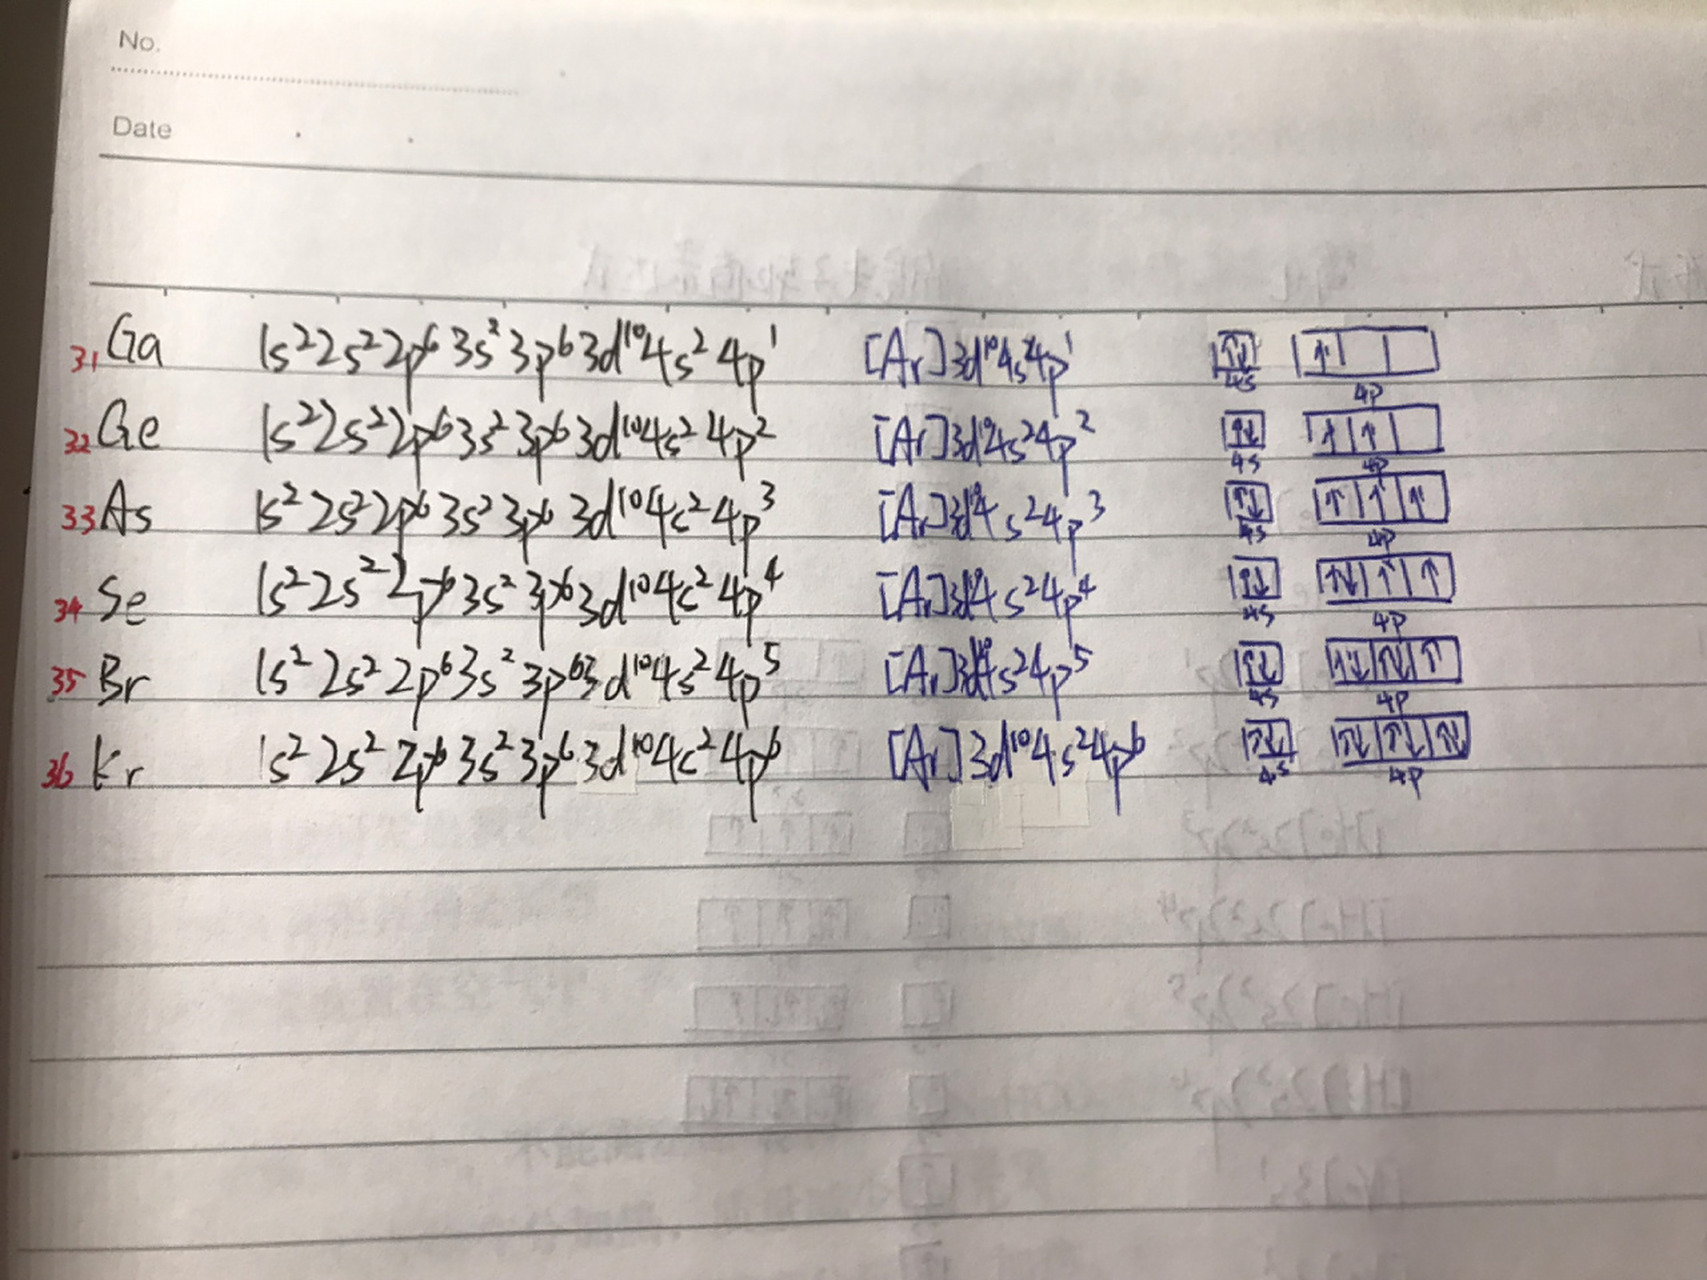 No.
Date
31 Ga 1s²2s²2p⁶3s²3p⁶3d¹⁰4s²4p¹ [Ar]3d¹⁰4s²4p¹ ↑↓ ↑
4s 4p
32 Ge 1s²2s²2p⁶3s²3p⁶3d¹⁰4s²4p² [Ar]3d¹⁰4s²4p² ↑↓ ↑ ↑
4s 4p
33 As 1s²2s²2p⁶3s²3p⁶3d¹⁰4s²4p³ [Ar]3d¹⁰4s²4p³ ↑↓ ↑ ↑ ↑
4s 4p
34 Se 1s²2s²2p⁶3s²3p⁶3d¹⁰4s²4p⁴ [Ar]3d¹⁰4s²4p⁴ ↑↓ ↑↓ ↑ ↑
4s 4p
35 Br 1s²2s²2p⁶3s²3p⁶3d¹⁰4s²4p⁵ [Ar]3d¹⁰4s²4p⁵ ↑↓ ↑↓ ↑↓ ↑
4s 4p
36 Kr 1s²2s²2p⁶3s²3p⁶3d¹⁰4s²4p⁶ [Ar]3d¹⁰4s²4p⁶ ↑↓ ↑↓ ↑↓ ↑↓
4s 4p